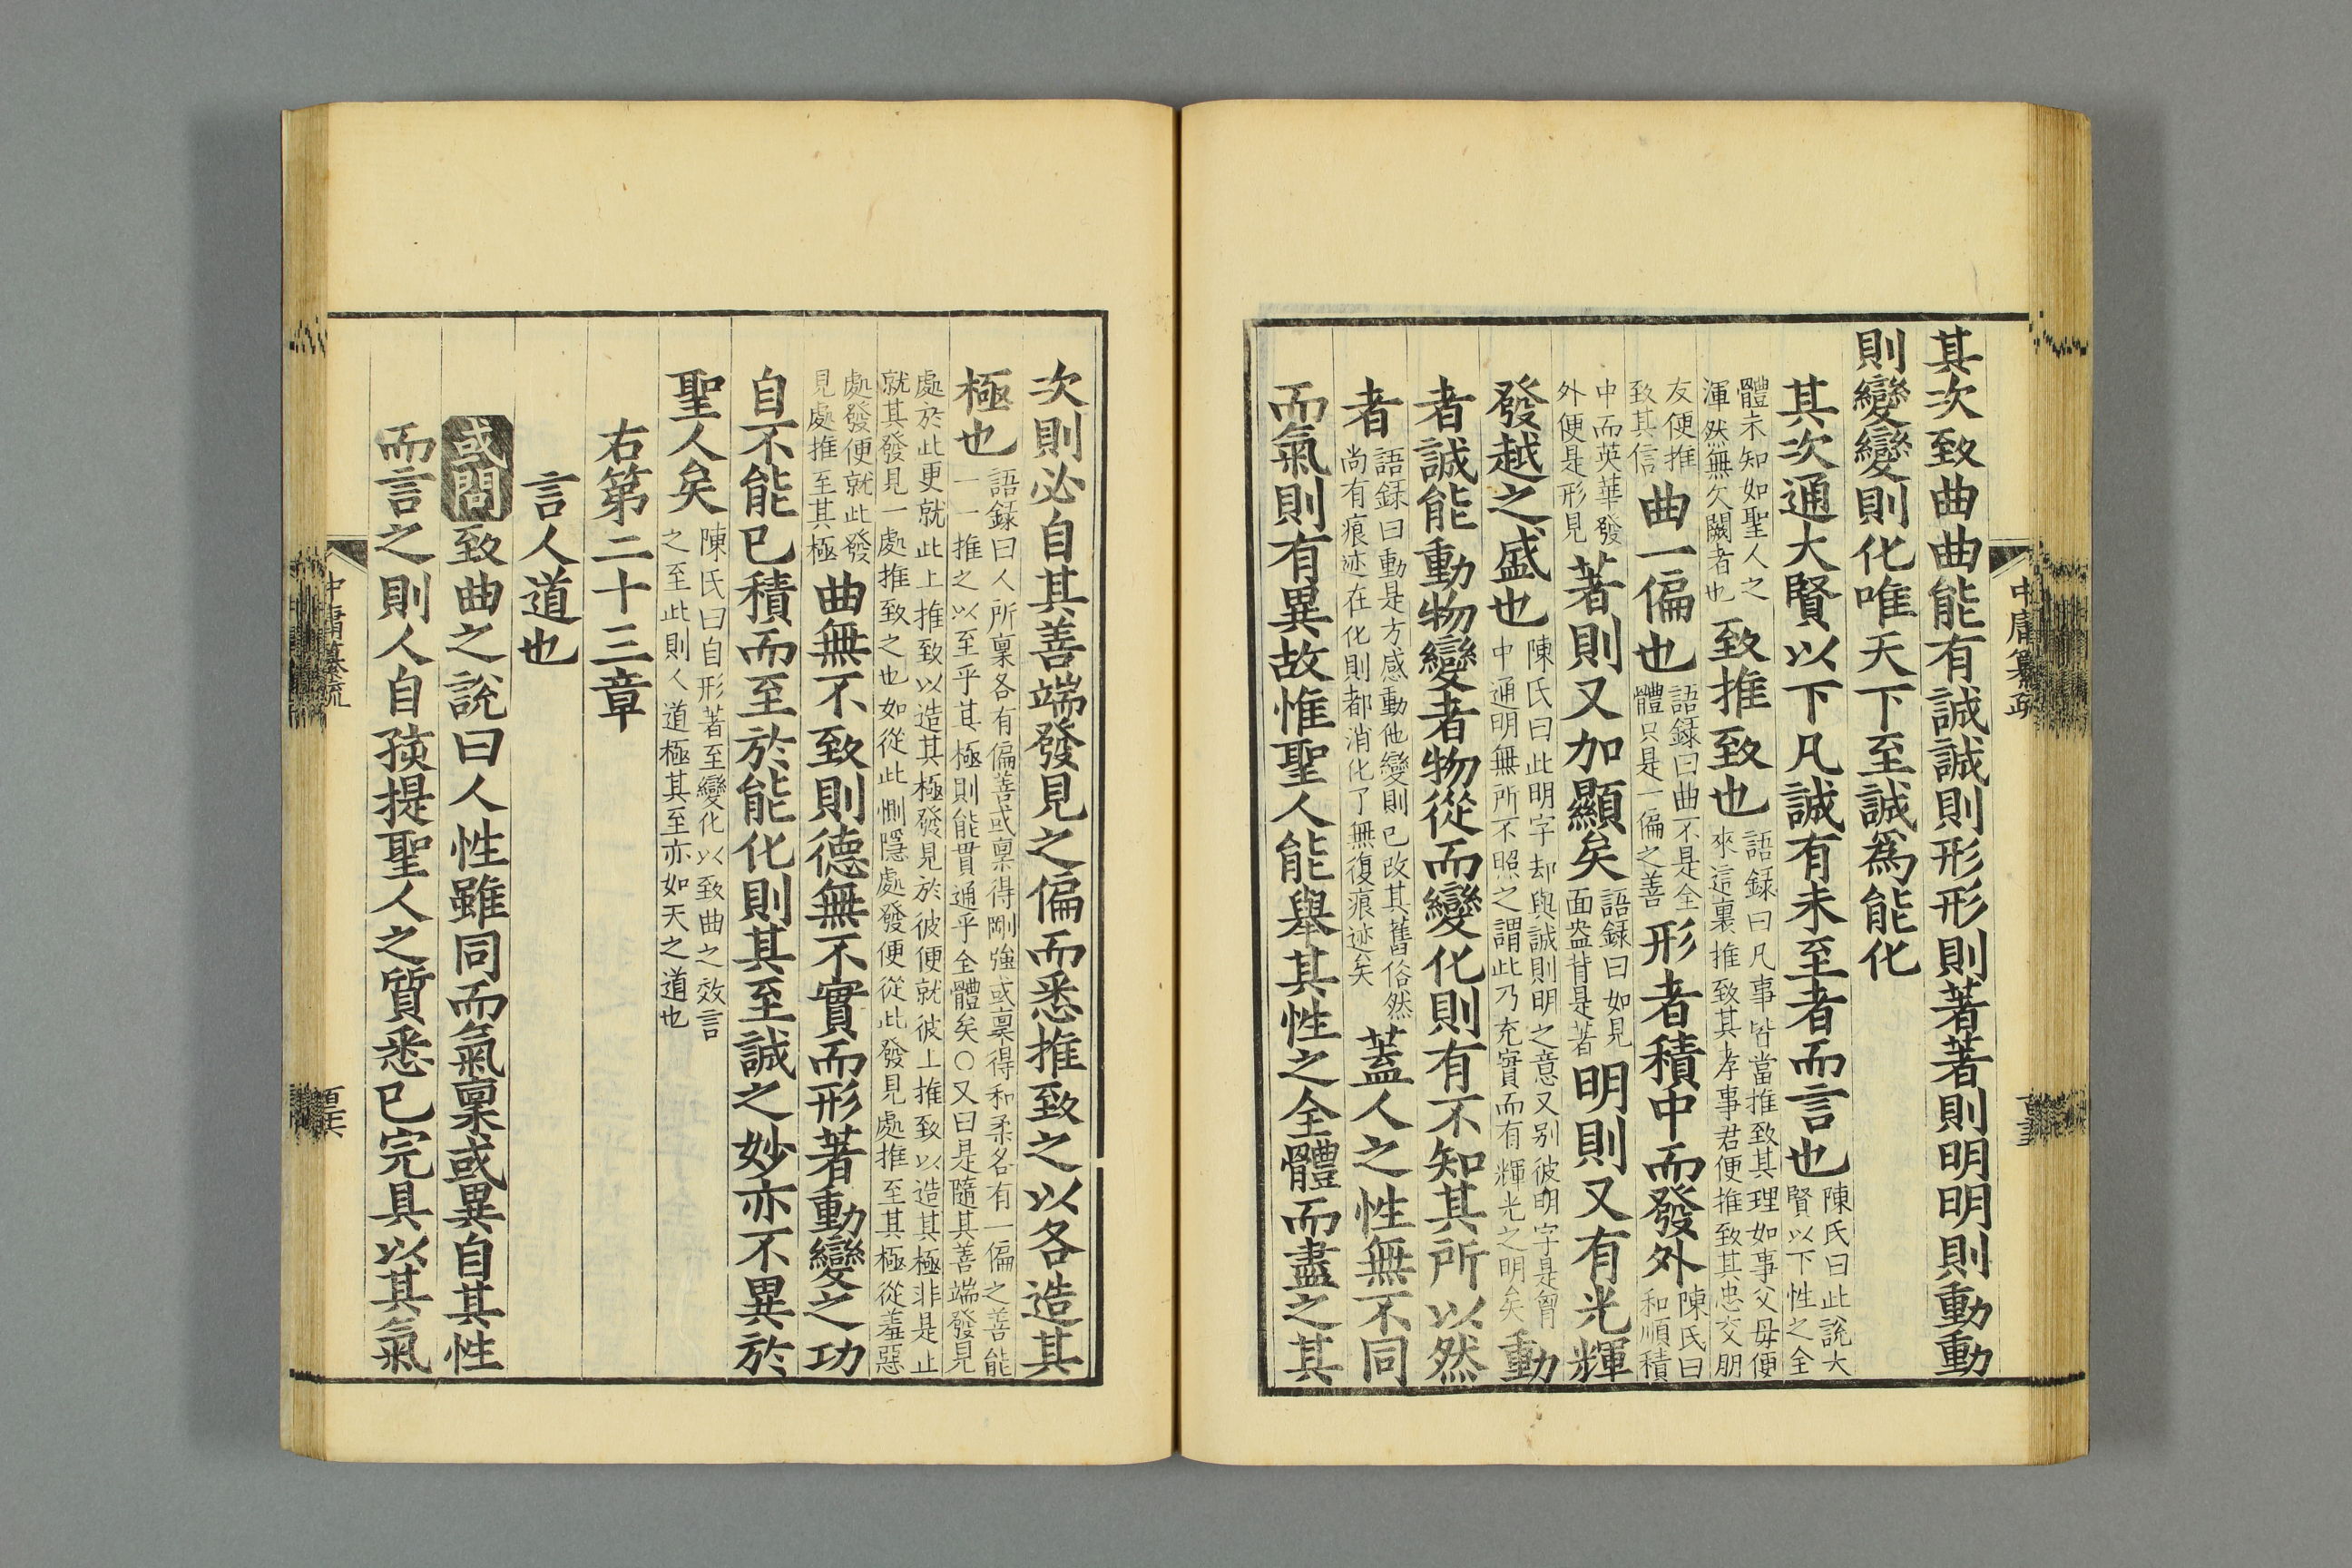 其次致曲曲能有誠誠則形形則著著則明明則動動
則變變則化唯天下至誠爲能化
其次通大賢以下凡誠有未至者而言也陳氏曰此說大
賢以下性之全
體未知如聖人之
渾然無欠闕者也致推致也語録曰凡事皆當推致其理如事父母便
來這裏推致其孝事君便推致其忠交朋
友便推
致其信曲一偏也語録曰曲不是全
體只是一偏之善形者積中而發外陳氏曰
和順積
中而英華發
外便是形見著則又加顯矣語録曰如見
面盎背是著明則又有光輝
發越之盛也陳氏曰此明字却與誠則明之意又别彼明字是
中通明無所不照之謂此乃充實而有輝光之明矣動
者誠能動物變者物從而變化則有不知其所以然
者語録曰動是方感動他變則已改其舊俗然
尚有痕迹在化則都消化了無復痕迹矣蓋人之性無不同
而氣則有異故惟聖人能舉其性之全體而盡之其
中庸纂疏
次則必自其善端發見之偏而悉推致之以各造其
極也語録曰人所稟各有偏善或稟得剛強或稟得和柔各有一偏之善能
一一推之以至乎其極則能貫通乎全體矣○又曰是隨其善端發見
處於此更就此上推致以造其極發見於彼便就彼上推致以造其極非是止
就其發見一處推致之也如從此惻隱處發便從此發見處推至其極從羞惡
處發便就此發
見處推至其極曲無不致則德無不實而形著動變之功
自不能已積而至於能化則其至誠之妙亦不異於
聖人矣陳氏曰自形著至變化以致曲之效言
之至此則人道極其至亦如天之道也
右第二十三章
言人道也
或問致曲之說曰人性雖同而氣稟或異自其性
而言之則人自孩提聖人之質悉已完具以其氣
中庸纂疏